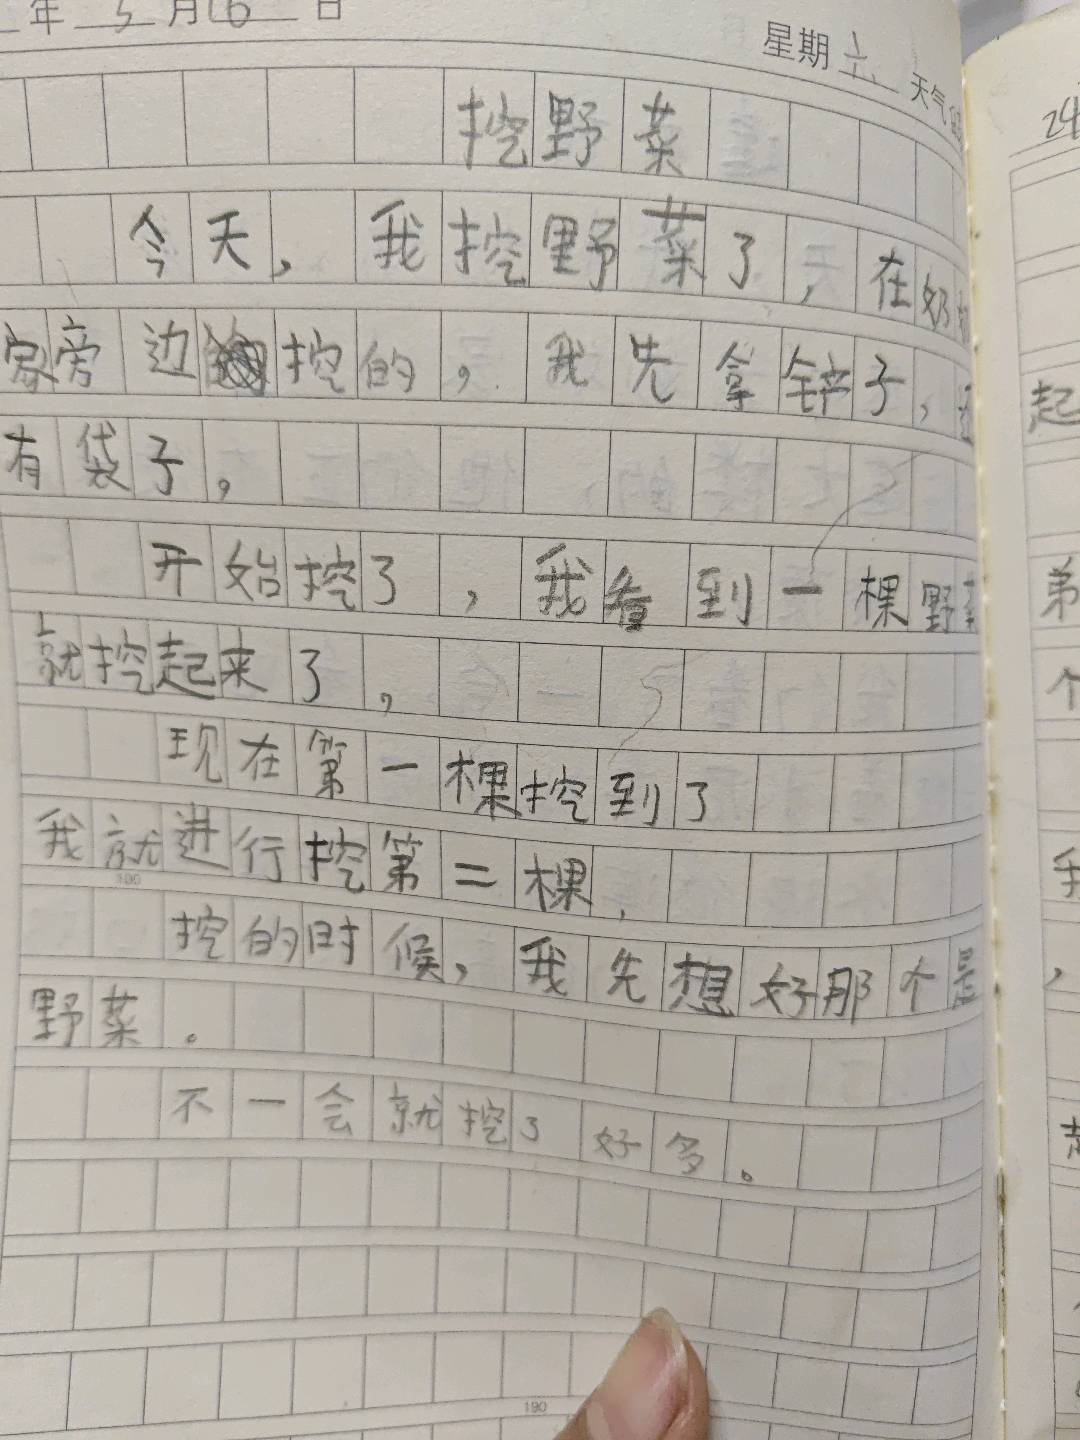 年 5 月 16 日
星期 六 天气
挖野菜
今天，我挖野菜了，在奶奶
家旁边挖的，我先拿铲子，还
有袋子。
开始挖了，我看到一棵野菜
就挖起来了。
现在第一棵挖到了
我就进行挖第二棵.
100
挖的时候，我先想好那个是
野菜。
不一会就挖了好多。
190
24
起
弟
个